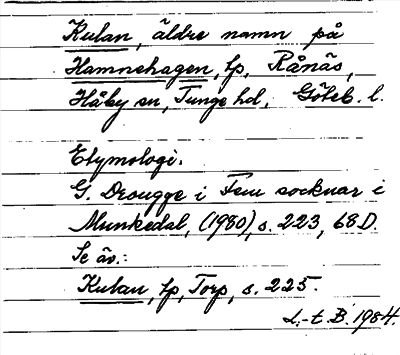 Kulan, äldre namn på
Hamnehagen, lp, Rånäs,
Håby sn, Tunge hd, Göteb. l.
Etymologi.
G. Drougge i Fem socknar i
Munkedal, (1980), s. 223, 68D.
Se äv.:
Kulan, lp, Torp, s. 225.
L.-t. B. 1984.